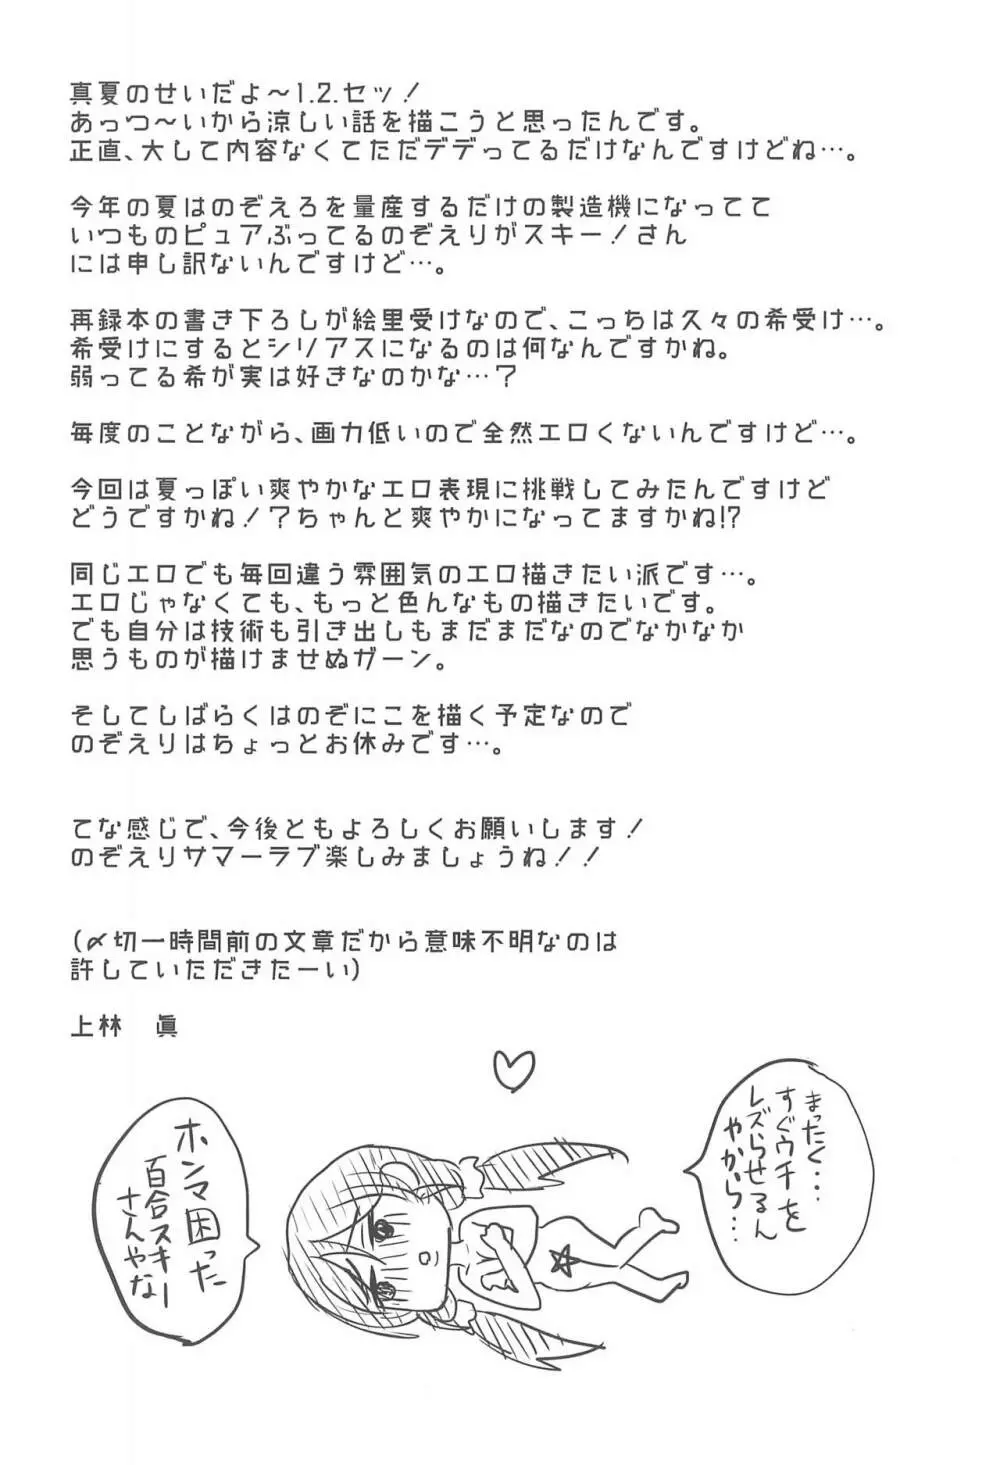 真夏のせいだよ～1.2.セッ！
あっつ～いから涼しい話を描こうと思ったんです。
正直、大して内容なくてただデデってるだけなんですけどね…。
今年の夏はのぞえろを量産するだけの製造機になってて
いつものピュアぶってるのぞえりがスキー！さん
には申し訳ないんですけど…。
再録本の書き下ろしが絵里受けなので、こっちは久々の希受け…。
希受けにするとシリアスになるのは何なんですかね。
弱ってる希が実は好きなのかな…？
毎度のことながら、画力低いので全然エロくないんですけど…。
今回は夏っぽい爽やかなエロ表現に挑戦してみたんですけど
どうですかね！？ちゃんと爽やかになってますかね!?
同じエロでも毎回違う雰囲気のエロ描きたい派です…。
エロじゃなくても、もっと色んなもの描きたいです。
でも自分は技術も引き出しもまだまだなのでなかなか
思うものが描けませぬガーン。
そしてしばらくはのぞにこを描く予定なので
のぞえりはちょっとお休みです…。
てな感じで、今後ともよろしくお願いします！
のぞえりサマーラブ楽しみましょうね！！
(〆切一時間前の文章だから意味不明なのは
許していただきたーい)
上林　眞
まったく・・・
すぐウチを
レズらせるん
やから・・・
ホンマ困った
百合スキー
さんやな